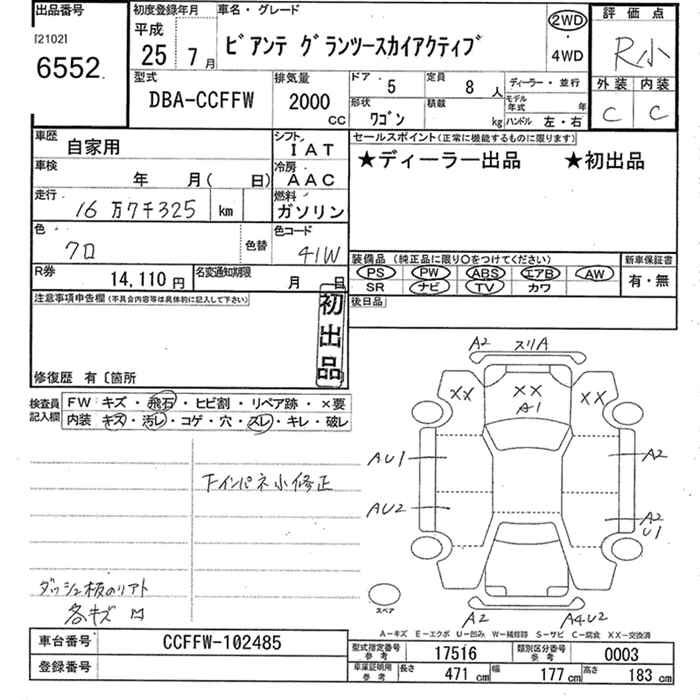 出品番号
[2102]
6552
初度登録年月
平成
25 7月
車名・グレード
ビアンテ グランツースカイアクティブ
2WD
・
4WD
評価点
R小
外装 内装
C C
型式
DBA-CCFFW
排気量
2000
CC
ドア・ 5
定員 8人
形状 ワゴン
積載 kg
ディーラー・並行
モデル年式 年
ハンドル 左・右
車歴 自家用
シフト IAT
車検 年 月( 日)
冷房 AAC
走行 16万7千325 km
燃料 ガソリン
色 クロ
色替
色コード 41W
R券 14,110円
名変通知期限 月 日
セールスポイント(正常に機能するものに限ります)
★ディーラー出品 ★初出品
装備品 (純正品に限り○をつけてください)
PS PW ABS エアB AW
SR ナビ TV カワ
新車保証書
有・無
後日品
注意事項申告欄(不具合内容等は具体的に記入して下さい)
初出品
修復歴 有〔箇所
検査員記入欄
FW キズ・飛石・ヒビ割・リペア跡・×要
内装 キズ・汚レ・コゲ・穴・スレ・キレ・破レ
下インパネ小修正
ダッシュ板のリアト
各キズ
A2 スリA
XX XX XX
A1
AU1 A2
AU2 A2
U1
スペア
A2 A4U2
A-キズ E-エクボ U-凹み W-補修跡 S-サビ C-腐食 XX-交換済
車台番号 CCFFW-102485
登録番号
型式指定番号参考 17516
類別区分番号参考 0003
車庫証明用参考 長さ 471cm 幅 177cm 高さ 183cm